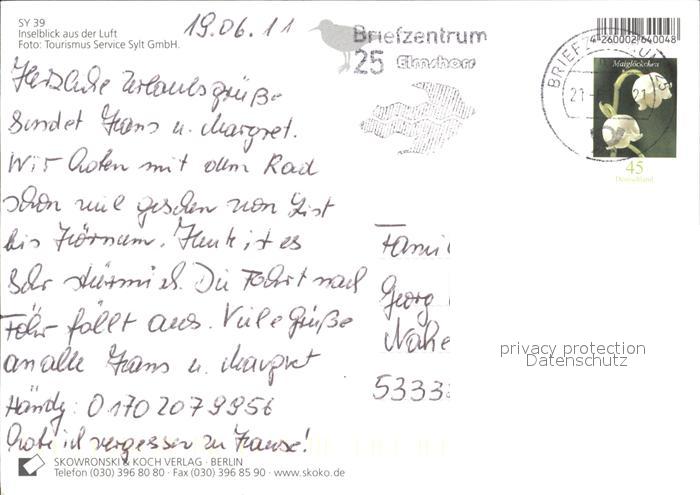 SY 39
Inselblick aus der Luft
Foto: Tourismus Service Sylt GmbH.
19.06.11
Herzliche Urlaubsgrüße
Sendet Hans u. Margret.
Wir haben mit dem Rad
schon viel gesehen von List
bis Hörnum. Heute ist es
Sehr stürmisch. Die Fahrt nach
Föhr fällt aus. Viele Grüße
an alle Hans u. Margret
Händy: 0170 2079956
habe ich vergessen zu Hause!
SKOWRONSKI & KOCH VERLAG · BERLIN
Telefon (030) 396 80 80 · Fax (030) 396 85 90 · www.skoko.de
Briefzentrum
25 Elmshorn
4 260002 640048
BRIEFZENTRUM
Maiglöckchen
45
Deutschland
Fami
Georg
Nahe
5333
privacy protection
Datenschutz